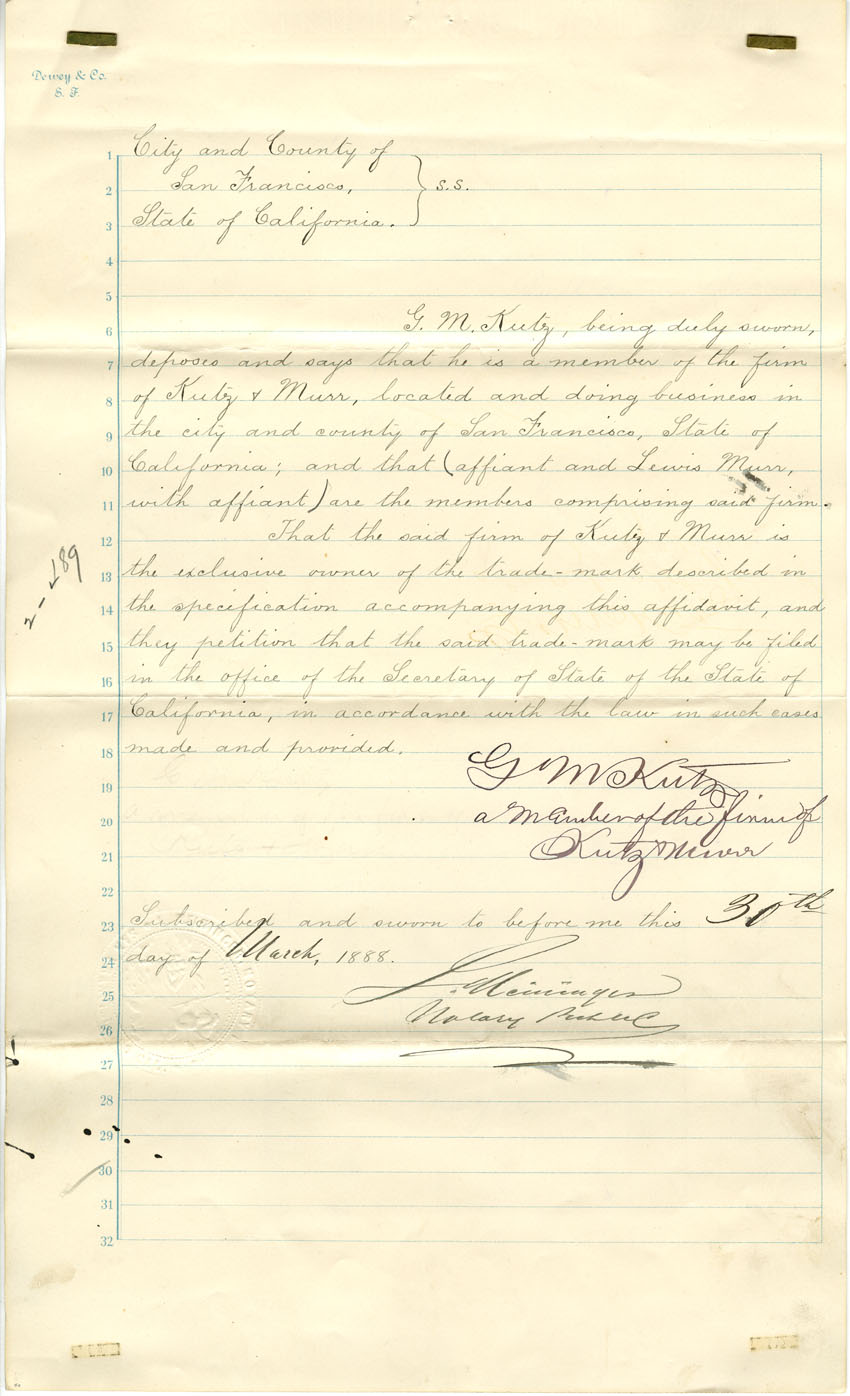 Dewey & Co.
S. F.
1 City and County of
2 San Francisco, } s.s.
3 State of California.
4
5
6 G. M. Kutz, being duly sworn,
7 deposes and says that he is a member of the firm
8 of Kutz & Murr, located and doing business in
9 the city and county of San Francisco, State of
10 California; and that (affiant and Lewis Murr,
11 with affiant) are the members comprising said firm.
12 That the said firm of Kutz & Murr is
13 the exclusive owner of the trade-mark described in
14 the specification accompanying this affidavit, and
15 they petition that the said trade-mark may be filed
16 in the office of the Secretary of State of the State of
17 California, in accordance with the law in such cases
18 made and provided.
19 G M Kutz
20 a member of the firm of
21 Kutz & Murr
22
23 Subscribed and sworn to before me this 30th
24 day of March, 1888.
25
26 Notary Public
27
28
29
30
31
32